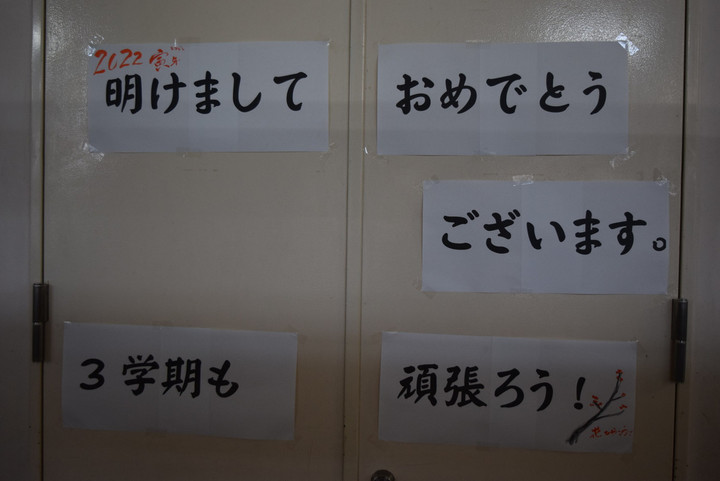 2022 寅年
明けまして
おめでとう
ございます。
3学期も
頑張ろう!